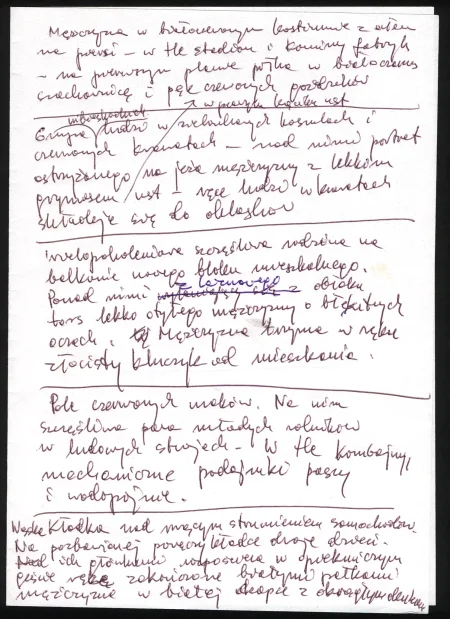 Mężczyzna w białoczerwonym kostiumie z orłem
na piersi – w tle stadion i kominy fabryk
– na pierwszym planie piłka w białoczarną
szachownicę i pęk czerwonych goździków
w prawym kąciku ust
Grupa ludzi w rozchylonych koszulach i
czerwonych krawatach – nad nimi portret
ostrzyżonego na jeża mężczyzny z lekkim
grymasem ust – ręce ludzi w krawatach
składają się do oklasków
wielopokoleniowa szczęśliwa rodzina na
balkonie nowego bloku mieszkalnego.
Ponad nimi z obłoku
tors lekko otyłego mężczyzny o błękitnych
oczach. Mężczyzna trzyma w ręku
złocisty kluczyk od mieszkania.
Pole czerwonych maków. Na nim
szczęśliwa para młodych rolników
w ludowych strojach – W tle kombajny,
mechaniczne podajniki paszy
i wodopojnie.
Wąska kładka nad rwącym strumieniem samochodów.
Na pozbawionej poręczy kładce dwoje dzieci.
Nad ich głowami rozpościera w opiekuńczym
geście ręce zakończone białymi
mężczyzna w białej czapce z okrągłym